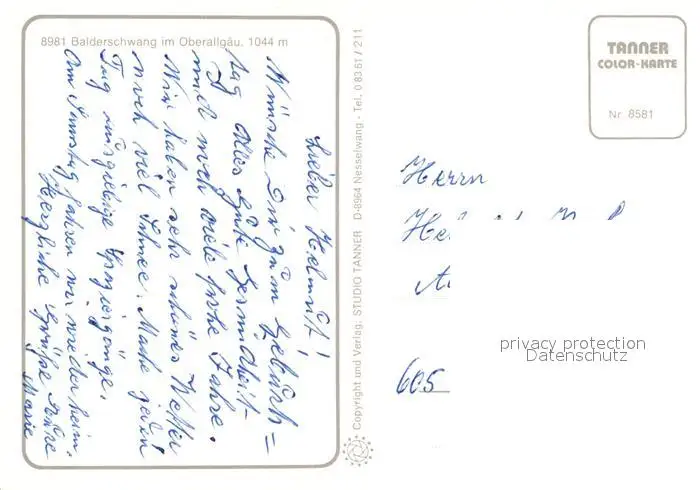 8981 Balderschwang im Oberallgäu, 1044 m
Lieber Helmut!
Wünsche Dir zum Geburts=
tag alles Gute Gesundheit
und noch viele frohe Jahre.
Wir haben sehr schönes Wetter
noch viel Schnee. Mache jeden
Tag ausgiebige Spaziergänge.
Am Samstag fahren wir wieder heim.
Herzliche Grüße
Marie
Copyright und Verlag: STUDIO TANNER D-8964 Nesselwang - Tel. 0 83 61 / 211
TANNER
COLOR-KARTE
Nr. 8581
Herrn
605
privacy protection
Datenschutz